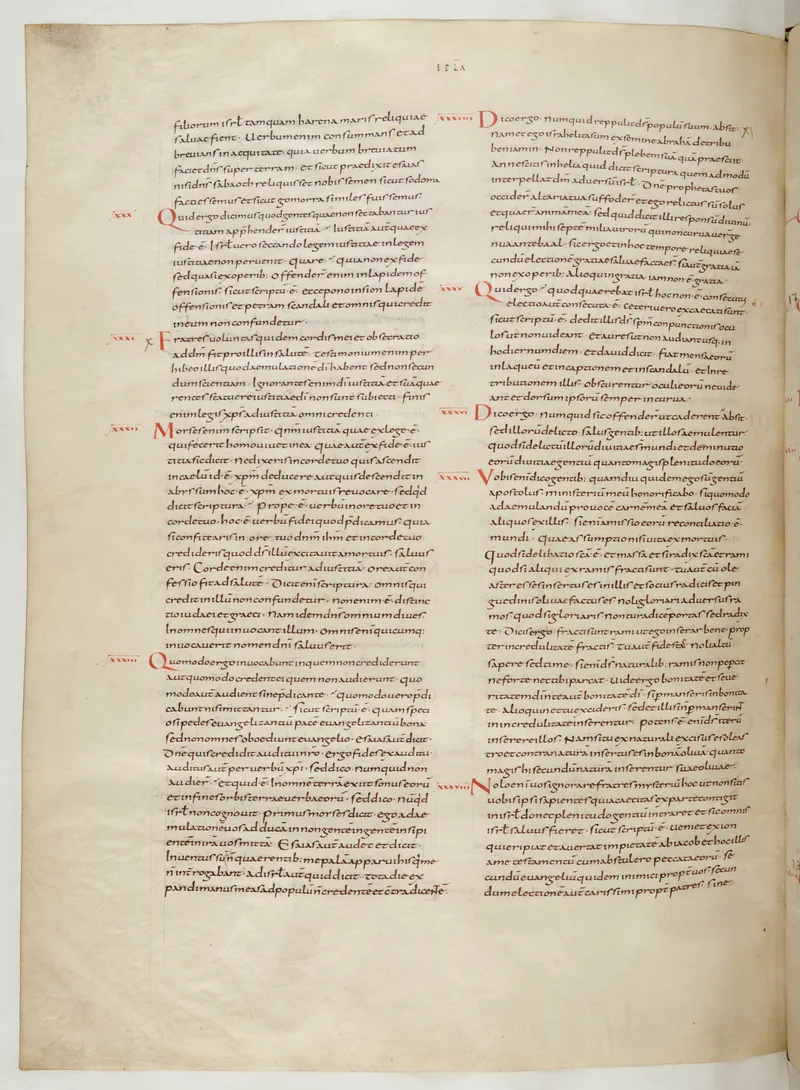 filiorum isrł tamquam harena maris reliquiae
saluae fient· Uerbum enim consummans et ad
breuians in aequitate· quia uerbum breuiatum
faciet dns super terram· et sicut praedixit esaias
nisi dns sabaoth reliquisset nobis semen sicut sodoma
facti essemus et sicut gomorra similes fuissemus·
xxx Quid ergo dicimus quod gentes quae non sectabantur ius
titiam apphenderunt iustitiam· iustitiam autem quae ex
fide ē· Isrł uero sectando legem iustitiae in legem
iustitiae non peruenit· Quare· quia non ex fide
sed quasi ex operib; offenderunt enim in lapidem of
fensionis· sicut scriptū ē· ecce pono in sion lapidē
offensionis et petram scandali et omnis qui credit
in eum non confundetur·
xxxi Fratres uoluntas quidem cordis mei et obsecratio
ad dm̄ fit pro illis in salutē· testimonium enim per
hibeo illis quod aemulationē di habent sed non secun
dum scientiam· Ignorantes enim di iustitiā et suā quae
rentes statuere iustitiae di non sunt subiecti· finis
enim legis xps ad iustitiā omni credenti·
xxxii Moyses enim scripsit· qnm iustitiā quae ex lege ē·
qui fecerit homo uiuet in ea· quae autē ex fide ē· ius
titia sic dicit· Ne dixeris in corde tuo quis ascendit
in caelū id·ē· xpm deducere aut quis descendit in
abyssum hoc·ē· xpm ex mortuis reuocare· sed qd
dicit scriptura· Prope·ē· uerbū in ore tuo et in
corde tuo· hoc·ē· uerbū fidei quod pdicamus· quia
si confitearis in ore tuo dnm ihm et in corde tuo
credideris quod ds illū excitauit a mortuis· saluus
eris· Corde enim creditur ad iustitiā· ore autē con
fessio fit ad salutē· Dicit enim scriptura· omnis qui
credit in illū non confundetur· non enim·ē· distinc
tio iudaei et graeci· Nam idem dns omnium diues
In omnes qui inuocant illum· omnis enī quicumq;
inuocauerit nomen dni saluus erit·
xxxiii Quomodo ergo inuocabunt in quem non crediderunt
Aut quomodo credent ei quem non audierunt· quo
modo autē audient sine pdicante· quomodo uero pdi
cabunt nisi mittantur· sicut scriptū·ē· quam speci
osi pedes euangelizantiū pacē euangelizantiū bona
sed non omnes oboediunt euangelio· Esaias autē dicit·
Dne quis credidit auditui nro· ergo fides ex auditu·
auditus autē per uerbū xpi· sed dico· numquid non
audierunt· et quid·ē· In omnē terrā exiit sonus eorū
et in fines orbis terrae uerba eorū· sed dico· nūqd
isrł non cognouit· primus moyses dicit· ego ad ae
mulationē uos adducā in non gentē in gentē insipi
entē in irā uos mittā· Esaias autē audet et dicit·
Inuentus sū n̄ quaerentib; me palā apparui his q̄ me
n̄ interrogabant· ad isrł autē quid dicit· tota die ex
pandi manus meas ad populū n̄ credentē et ctradicentē·
ITLA
xxxiiii Dico ergo· numquid reppulit ds populū suum· absit·
nam et ego israhelita sum ex semine abrahā de tribu
beniamin· Non reppulit ds plebem suā quā praesciit·
An nescitis in helia quid dicit scriptura quem admodū
interpellat dm aduersū isrł· Dne prophetas tuos
occiderunt altaria tua suffoderunt et ego relictus sū solus
et quaerunt animā meā· sed quid dicit illi responsū diuinū·
reliqui mihi septē milia uirorū qui non curuauer ge
nua ante baal· sic ergo et in hoc tempore reliquiae se
cundū electionē gratiae saluae factae st· si autē gratia iā
non ex operib; alioquin gratia iam non ē gratia·
xxxv Quid ergo· quod quaerebat isrł hoc non·ē· consecutus
electio autē consecuta·ē· ceteri uero excaecati sunt·
sicut scriptū·ē· dedit illis ds spm compunctionis ocu
los ut non uideant· et aures ut non audiant usq; in
hodiernum diem· et dauid dicit· fiat mensa eorū
in laqueū et in captionem et in scandalū· et in re
tributionem illis· obscurentur oculi eorū ne uide
ant et dorsum ipsorū semper incurua·
xxxvi Dico ergo· numquid sic offenderunt ut caderent· absit·
sed illorū delicto salus gentib; ut illos aemulentur
quod si delictū illorū diuitiae st mundi et deminutio
eorū diuitiae gentiū quanto magis plenitudo eorū·
xxxvii Vobis enī dico gentib; quamdiu quidem ego sū gentiū
apostolus· ministeriū meū honorificabo· si quomodo
ad aemulandū prouocē carnē meā et saluos faciā
aliquos ex illis· si enī amissio eorū reconciliatio·ē·
mundi· quae assumptio nisi uita ex mortuis·
Quod si delibatio scā·ē· et massa et si radix scā et rami
quod si aliqui ex ramis fracti sunt· tu autē cū ole
aster esses insertus es in illis et socius radicis et pin
guedinis oliuae factus es· noli gloriari aduersus ra
mos· quod si gloriaris non tu radicē portas sed radix
te· Dicis ergo fracti sunt rami ut ego inserar· bene· prop
ter incredulitatē fracti st· tu autē fide stas· noli altū
sapere sed time· si enī ds naturalib; ramis non pepcit
ne forte nec tibi parcat· uide ergo bonitatē et seue
ritatem di in te autē bonitatē di· si pmanseris in bonita
te· Alioquin et tu excideris· sed et illi si n̄ pmanserint
in incredulitate inserentur· potens·ē· enī ds iterū
inserere illos· Nam si tu ex naturali excisus es oleas
tro et contra naturā insertus es in bonā oliuā· quanto
magis hi secundū naturā inserentur suae oliuae·
xxxviii Nolo enī uos ignorare fratres mysteriū hoc ut non sitis
uobis ipsis sapientes quia caecitas ex parte contigit
in isrł donec plenitudo gentiū intraret et sic omnis
isrł saluus fieret· sicut scriptū·ē· ueniet ex sion
qui eripiat et auertat impietatē ab iacob et hoc illis
a me testamentū cum abstulero peccata eorū· se
cundū euangeliū quidem inimici propt uos· secun
dum electionē autē carissimi propt patres· sine